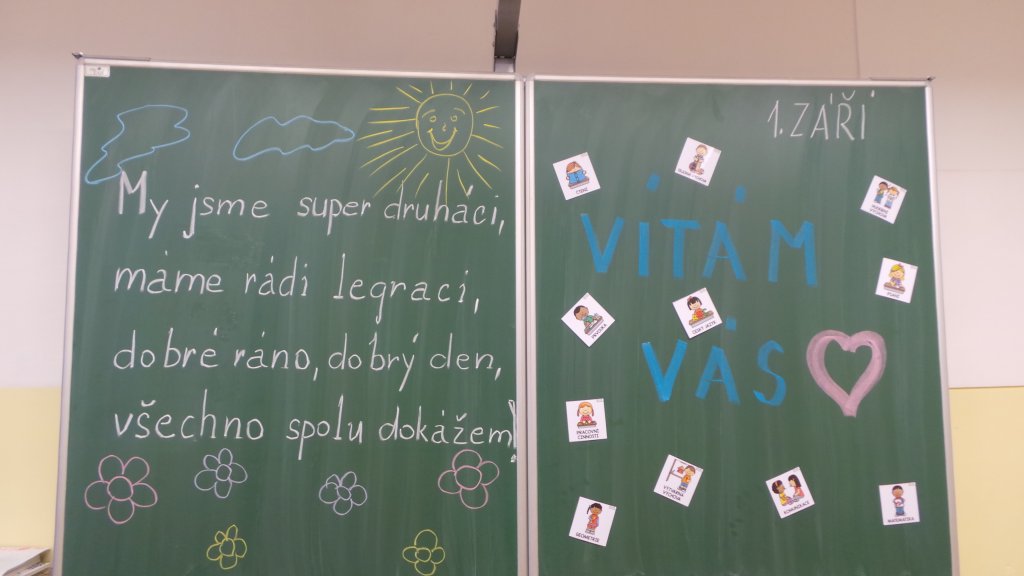 My jsme super druháci,
máme rádi legraci,
dobré ráno, dobrý den,
všechno spolu dokážem!
1. ZÁŘÍ
VÍTÁM
VÁS
ČTENÍ
HUDEBNÍ
VÝCHOVA
PSANÍ
PRVOUKA
ČESKÝ JAZYK
PRACOVNÍ
ČINNOSTI
VÝTVARNÁ
VÝCHOVA
KOMUNIKACE
MATEMATIKA
GEOMETRIE